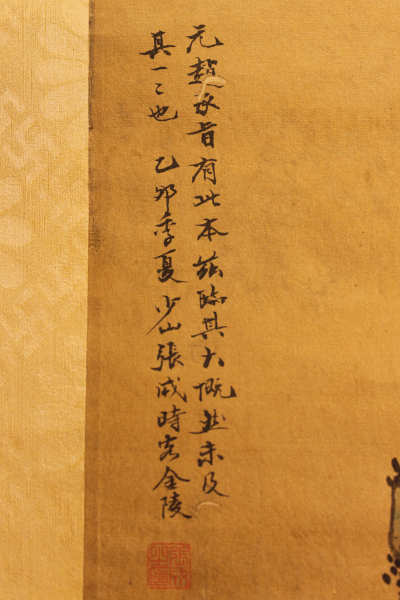 元趙承旨有此本茲臨其大概並未及
其一二也 乙卯季夏少山張成時客金陵